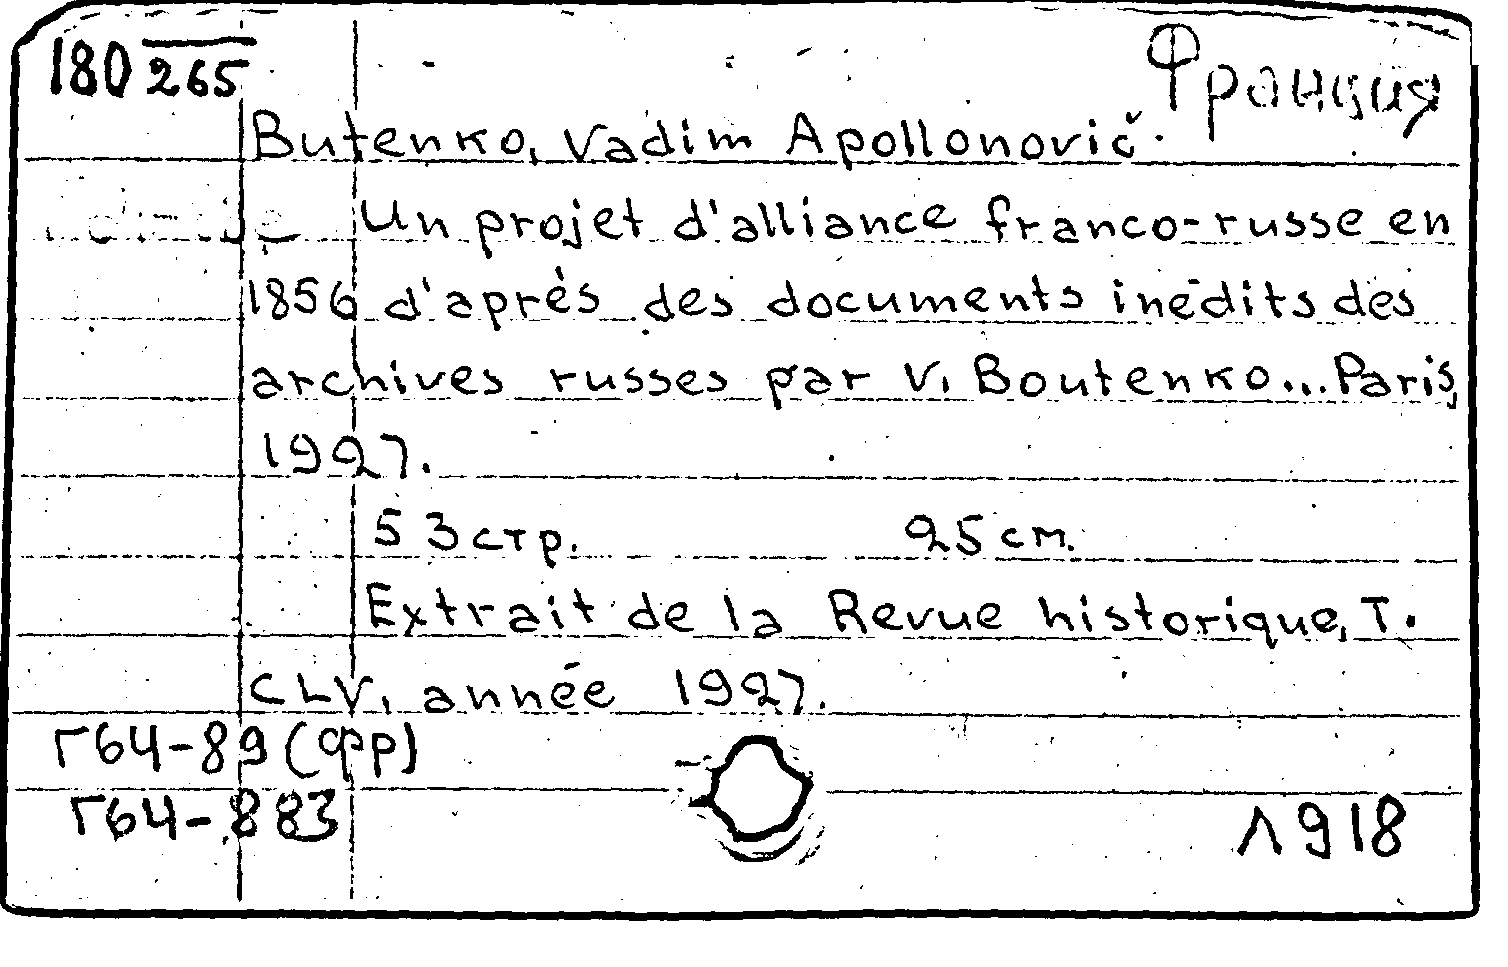 180 265
Франция
Butenko, Vadim Apollonovič.
Un projet d'alliance franco-russe en
1856 d'après des documents inédits des
archives russes par V. Boutenko... Paris,
1927.
53 стр. 25 cm.
Extrait de la Revue historique, T.
CLV, année 1927.
Г64-89 (фр)
Г64-883
Л918